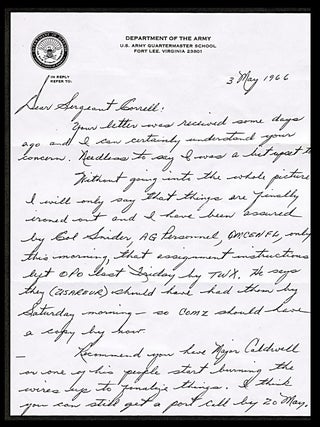 DEPARTMENT OF THE ARMY
U.S. ARMY QUARTERMASTER SCHOOL
FORT LEE, VIRGINIA 23801
IN REPLY
REFER TO:
3 May 1966
Dear Sergeant Correll:
Your letter was received some days
ago and I can certainly understand your
concern. Needless to say I was a bit upset too
Without going into the whole picture
I will only say that things are finally
ironed out and I have been assured
by Col Snider, AG Personnel, QMCEN FL, only
this morning, that assignment instructions
left OPO last Friday by TWX. He says
they (USAREUR) should have had them by
Saturday morning — so COMZ should have
a copy by now.
Recommend you have Major Caldwell
or one of his people start burning the
wires up to finalize things. I think
you can still get a port call by 20 May.